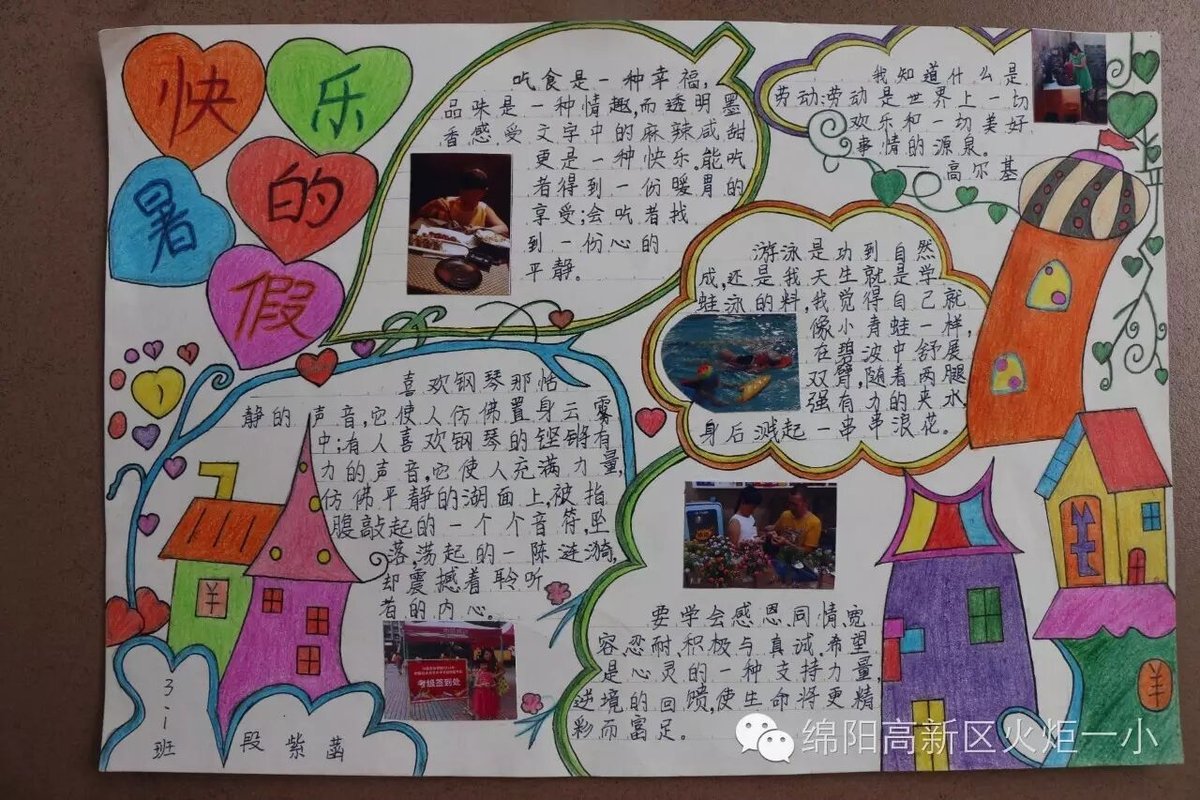 快乐
的
暑
假
吃食是一种幸福,
品味是一种情趣,而透明墨
香感受文字中的麻辣咸甜
更是一种快乐。能吃
者得到一份暖胃的
享受;会吃者找
到一份心的
平静。
我知道什么是
劳动:劳动是世界上一切
欢乐和一切美好
事情的源泉。
——高尔基
游泳是功到自然
成,还是我天生就是学
蛙泳的料,我觉得自己就
像小青蛙一样,
在碧波中舒展
双臂,随着两腿
强有力的夹水
身后溅起一串串浪花。
喜欢钢琴那恬
静的声音,它使人仿佛置身云雾
中;有人喜欢钢琴的铿锵有
力的声音,它使人充满力量,
仿佛平静的湖面上,被指
腹敲起的一个个音符,坠
落,荡起的一阵涟漪,
却震撼着聆听
者的内心。
考级签到处
要学会感恩、同情、宽
容、忍耐、积极与真诚,希望
是心灵的一种支持力量,
逆境的回馈,使生命将更精
彩而富足。
3-1
班 段紫菡
绵阳高新区火炬一小